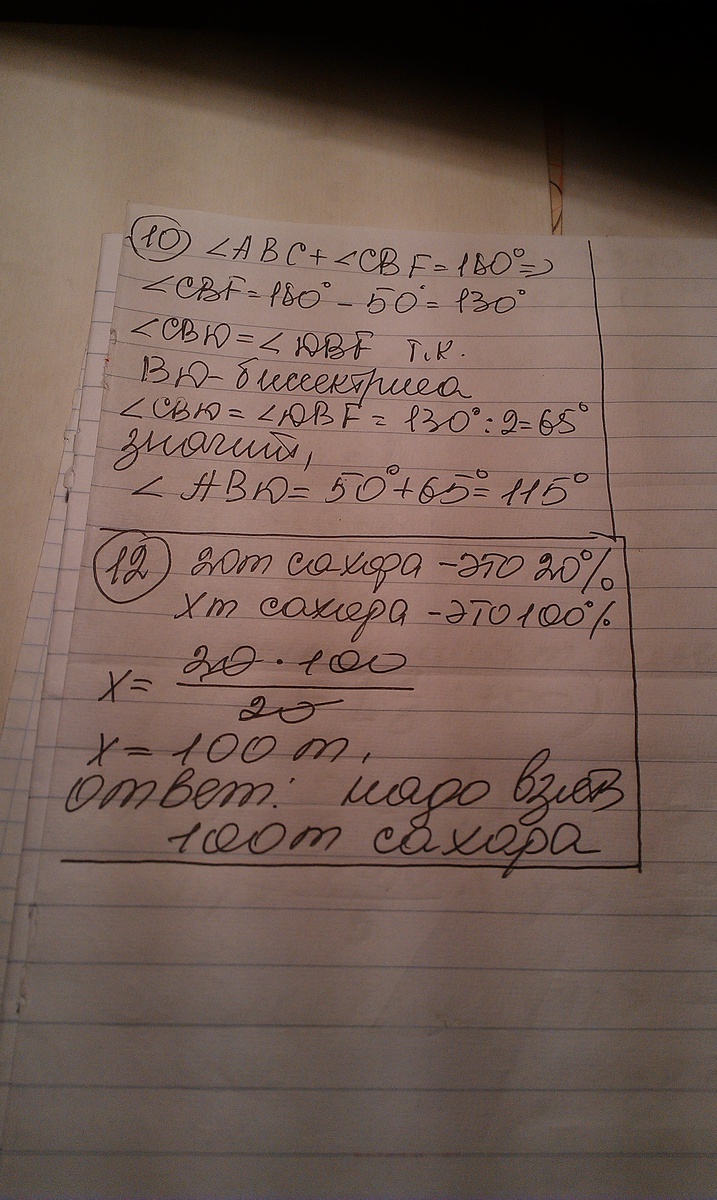 10 ∠ABC + ∠CBF = 180° =>
∠CBF = 180° - 50° = 130°
∠CBЮ = ∠ЮBF т.к.
BЮ - биссектриса
∠CBЮ = ∠ЮBF = 130° : 2 = 65°
значит,
∠ABЮ = 50° + 65° = 115°
12 20т сахара - это 20%
Xт сахара - это 100%
X = 20 · 100
20
X = 100 т.
Ответ: надо взять
100т сахара